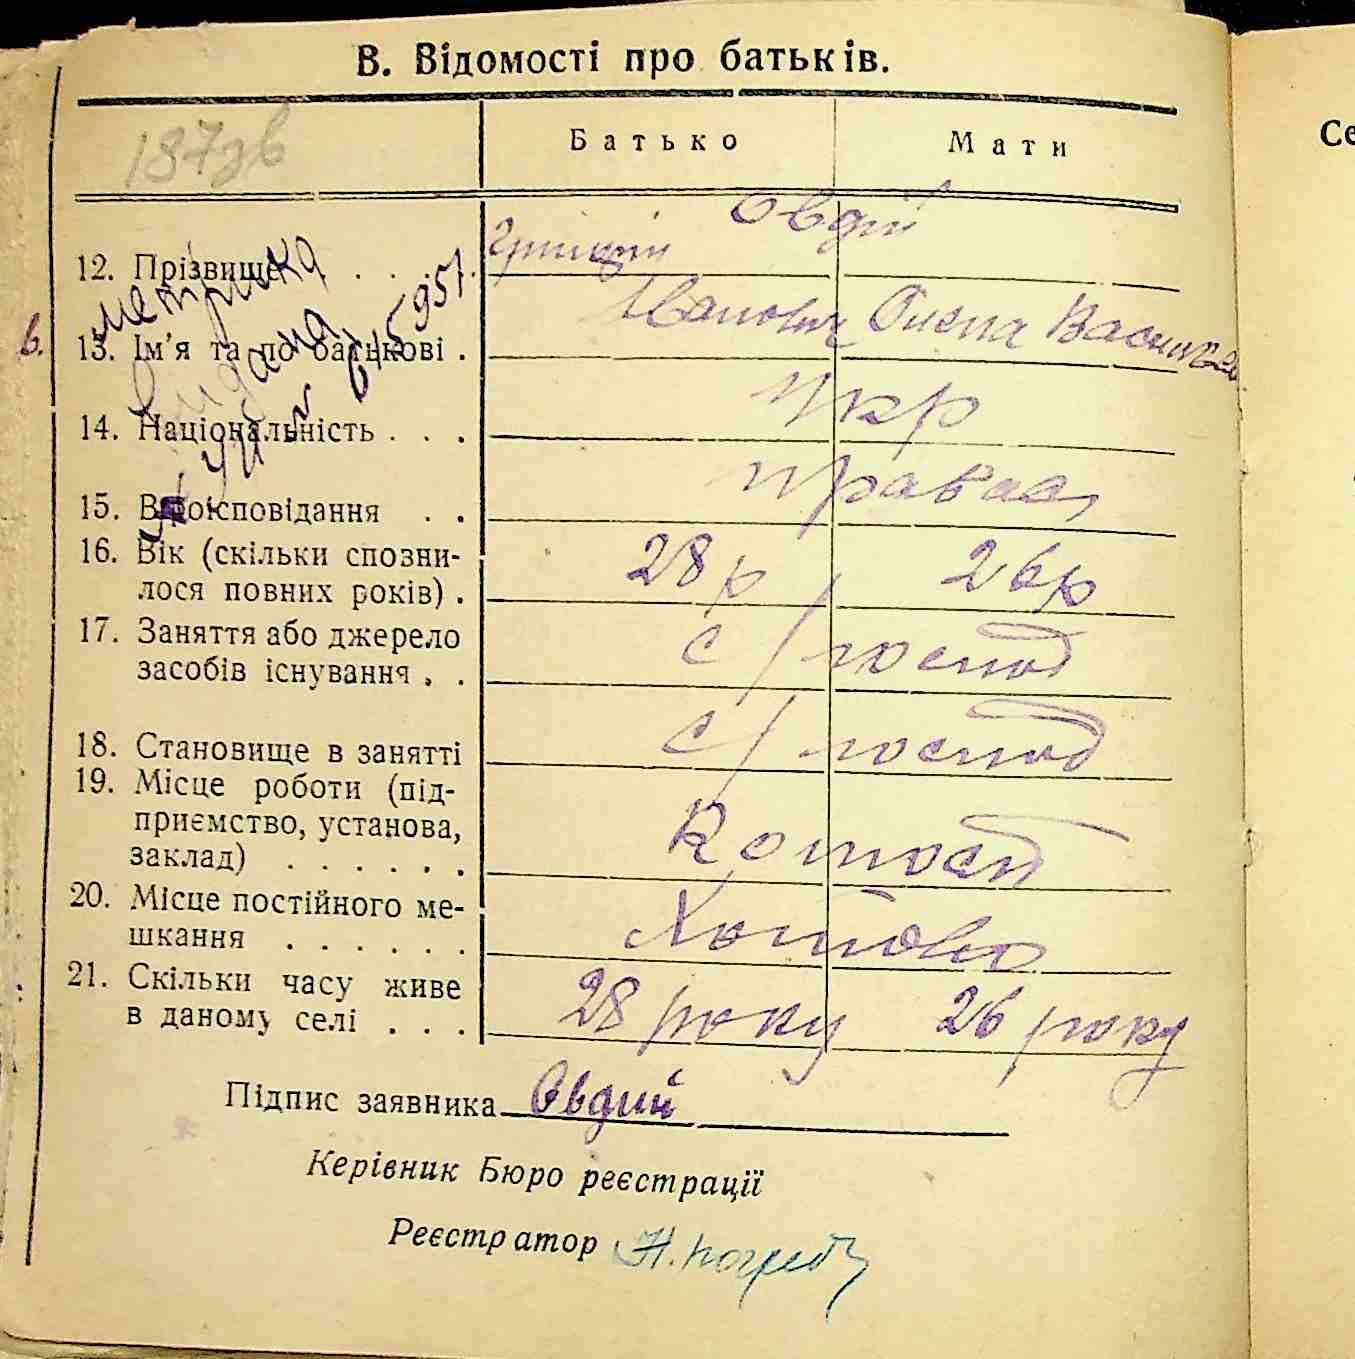 В. Відомості про батьків.
187дв
Батько Мати
Овдій
12. Прізвище . . . . Григорій
метрика
13. Ім'я та по батькові . Іванович Олена Василівн
видана
14. Національність . . . укр
15. Віроісповідання . . правос
16. Вік (скільки спозни-
лося повних років) . 28 р 26 р
17. Заняття або джерело
засобів існування . . с/господ
18. Становище в занятті с/господ
19. Місце роботи (під-
приємство, установа,
заклад) . . . . . .
20. Місце постійного ме-
шкання . . . . . . Хотово
21. Скільки часу живе
в даному селі . . . 28 року 26 року
Підпис заявника Овдий
Керівник Бюро реєстрації
Реєстратор
Се